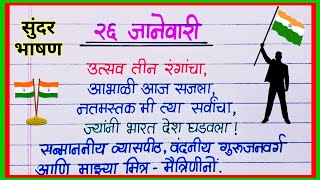 सुंदर
भाषण
२६ जानेवारी
उत्सव तीन रंगांचा,
आभाळी आज सजला,
नतमस्तक मी त्या सर्वांचा,
ज्यांनी भारत देश घडवला !
सन्माननीय व्यासपीठ, वंदनीय गुरुजनवर्ग
आणि माझ्या मित्र - मैत्रिणींनों.